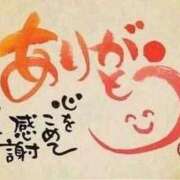 ありがとう
心を
こめて
感謝